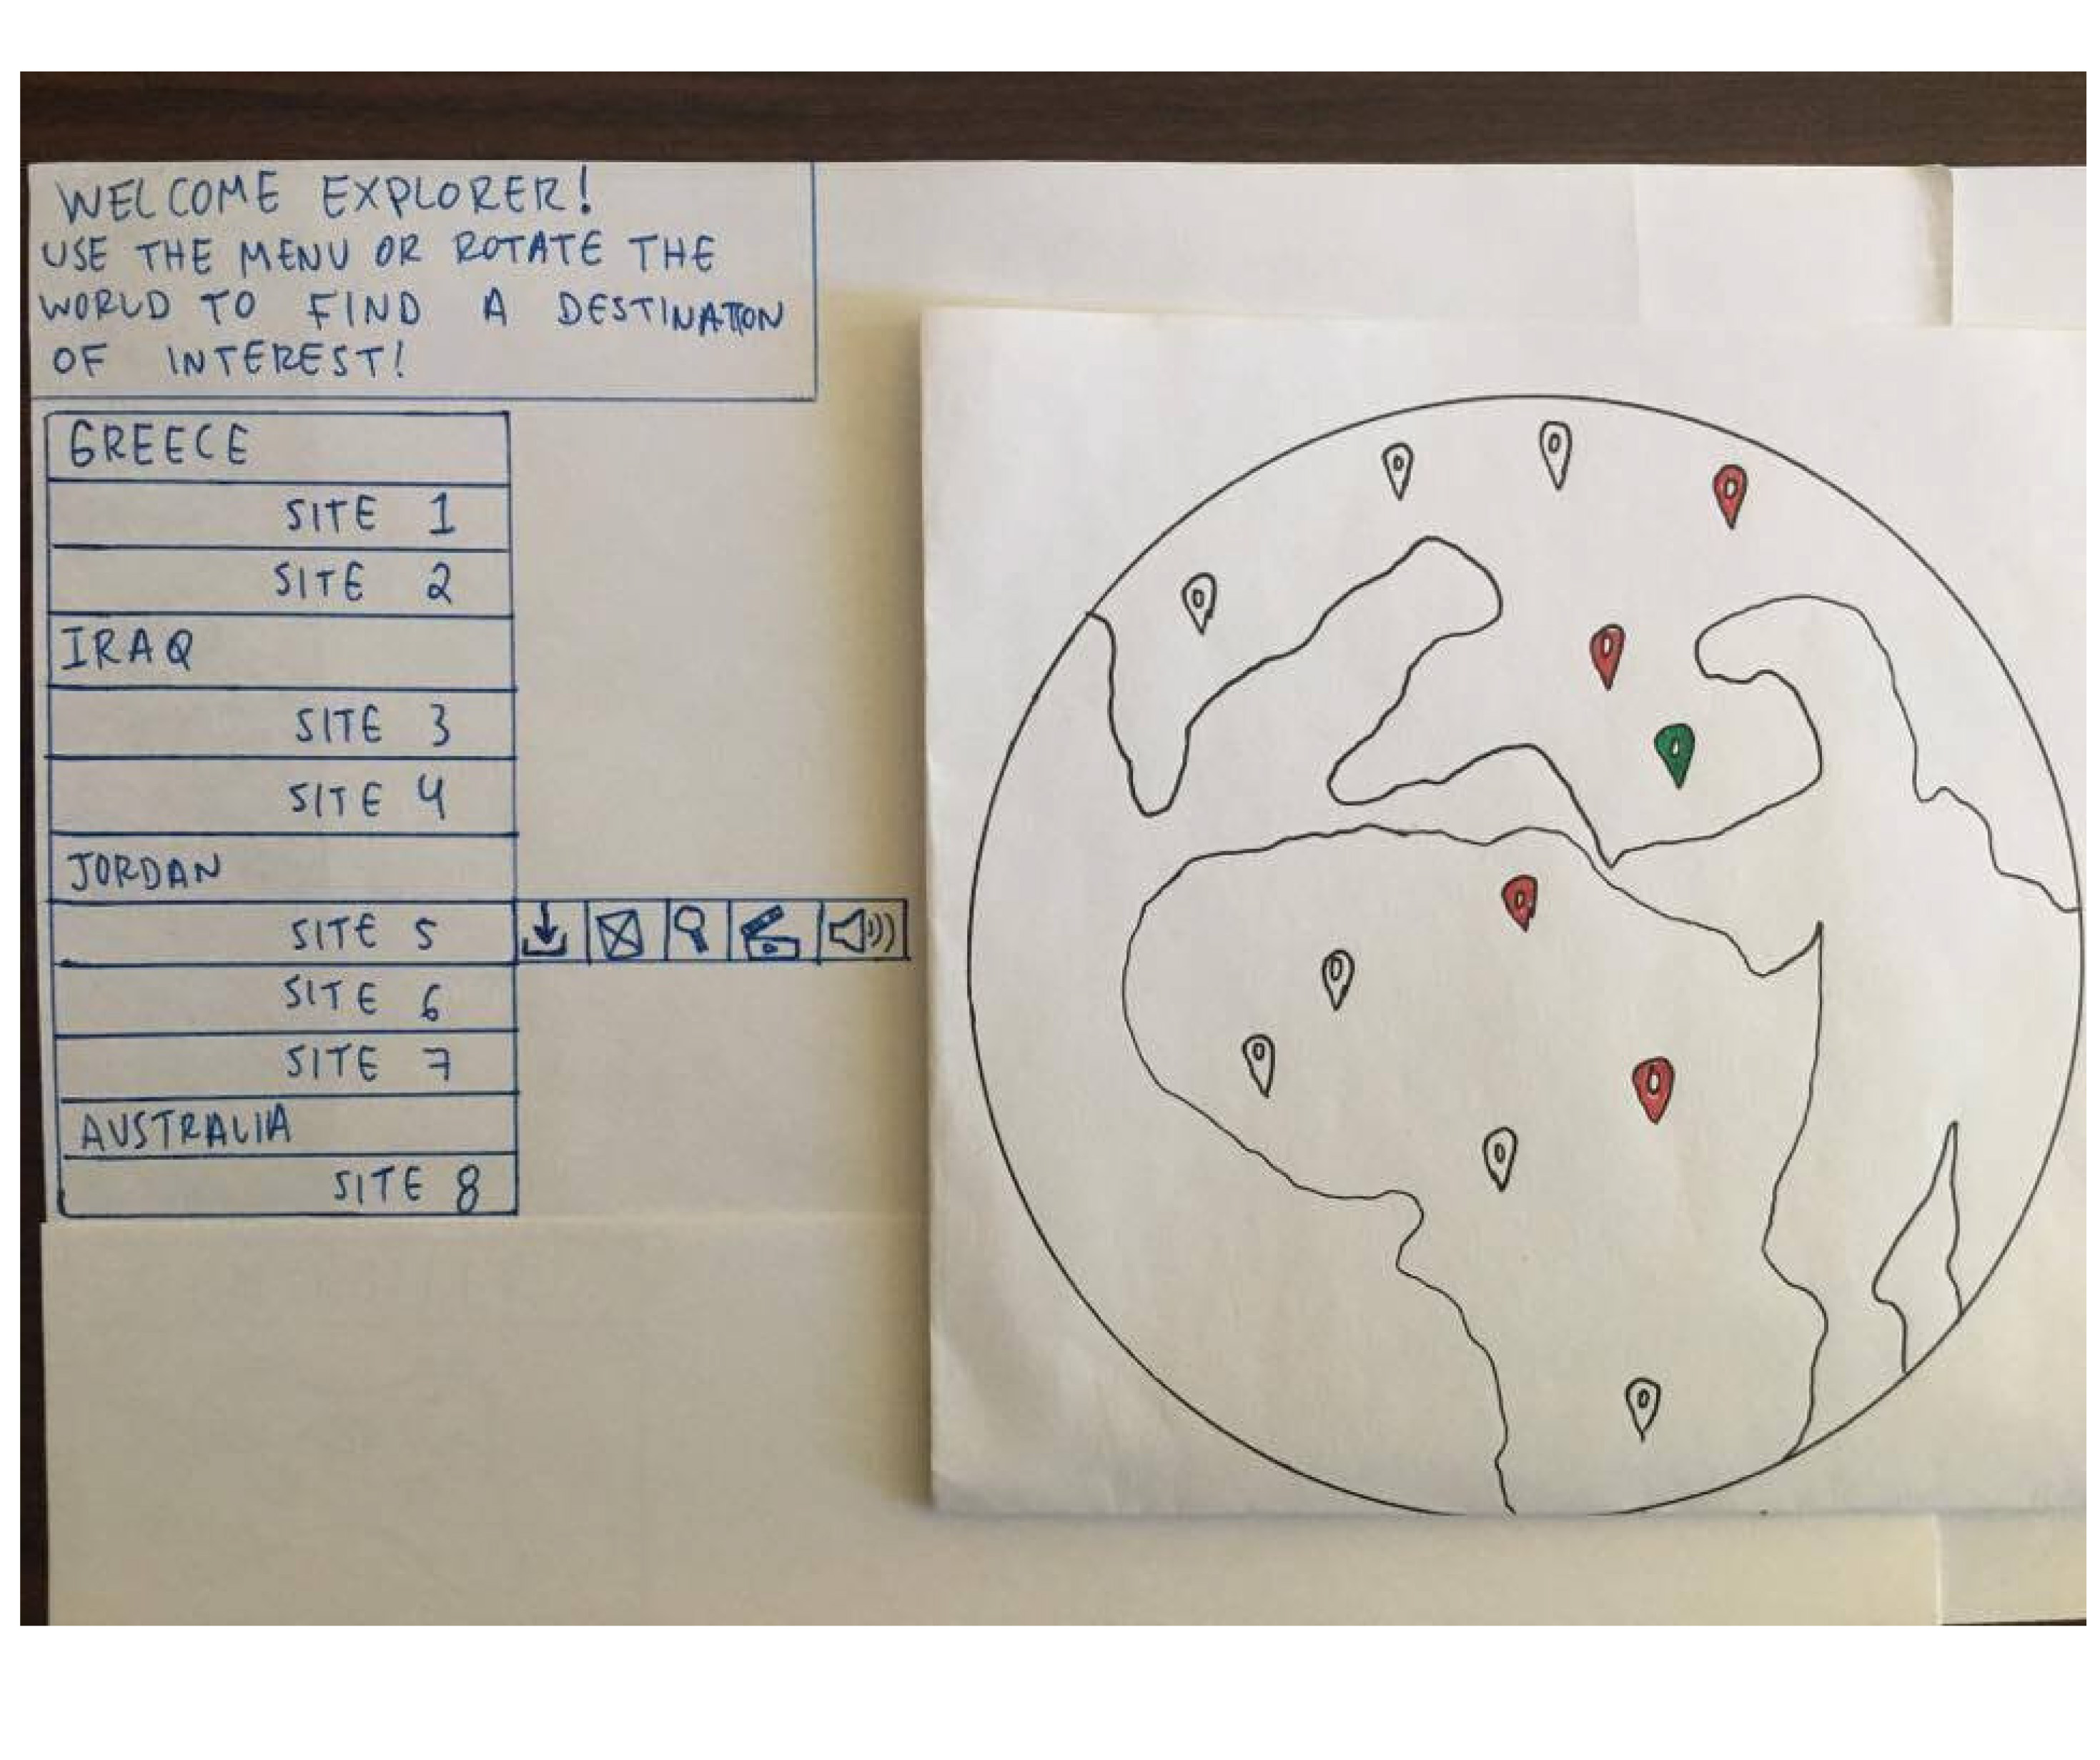 WELCOME EXPLORER!
USE THE MENU OR ROTATE THE
WORLD TO FIND A DESTINATION
OF INTEREST!
GREECE
SITE 1
SITE 2
IRAQ
SITE 3
SITE 4
JORDAN
SITE 5
SITE 6
SITE 7
AUSTRALIA
SITE 8